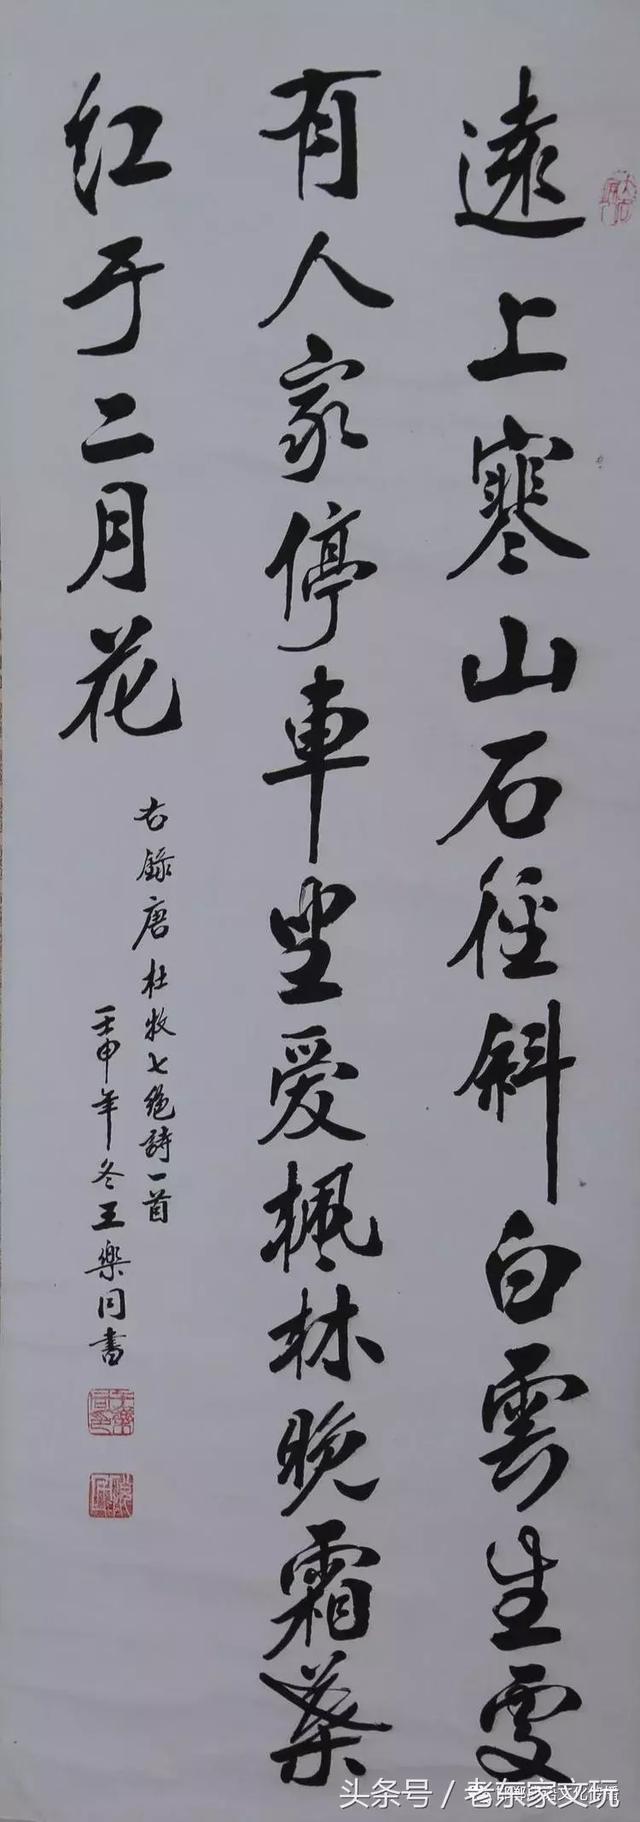 遠上寒山石徑斜白雲生處
有人家停車坐爱楓林晚霜葉
红于二月花
右錄唐杜牧七绝詩一首
壬申年冬王樂同書
头条号/老东家文玩